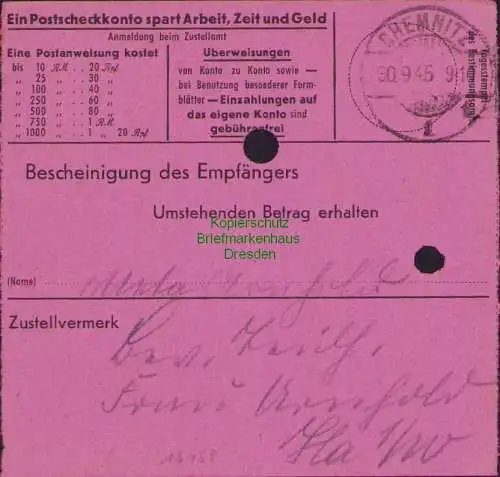 Ein Postscheckkonto spart Arbeit, Zeit und Geld
Anmeldung beim Zustellamt
Eine Postanweisung kostet
bis 10 RM . . 20 Rpf
„ 25 „ . . 30 „
„ 100 „ . . 40 „
„ 250 „ . . 60 „
„ 500 „ . . 80 „
„ 750 „ . . 1 RM
„ 1000 „ . . 1 „ 20 Rpf
Überweisungen
von Konto zu Konto sowie —
bei Benutzung besonderer Form-
blätter — Einzahlungen auf
das eigene Konto sind
gebührenfrei
CHEMNITZ
30.9.45
Tagesstempel
des Bestimmungsorts
Bescheinigung des Empfängers
Umstehenden Betrag erhalten
Kopierschutz
Briefmarkenhaus
Dresden
(Name)
Zustellvermerk
Frau Arnhold